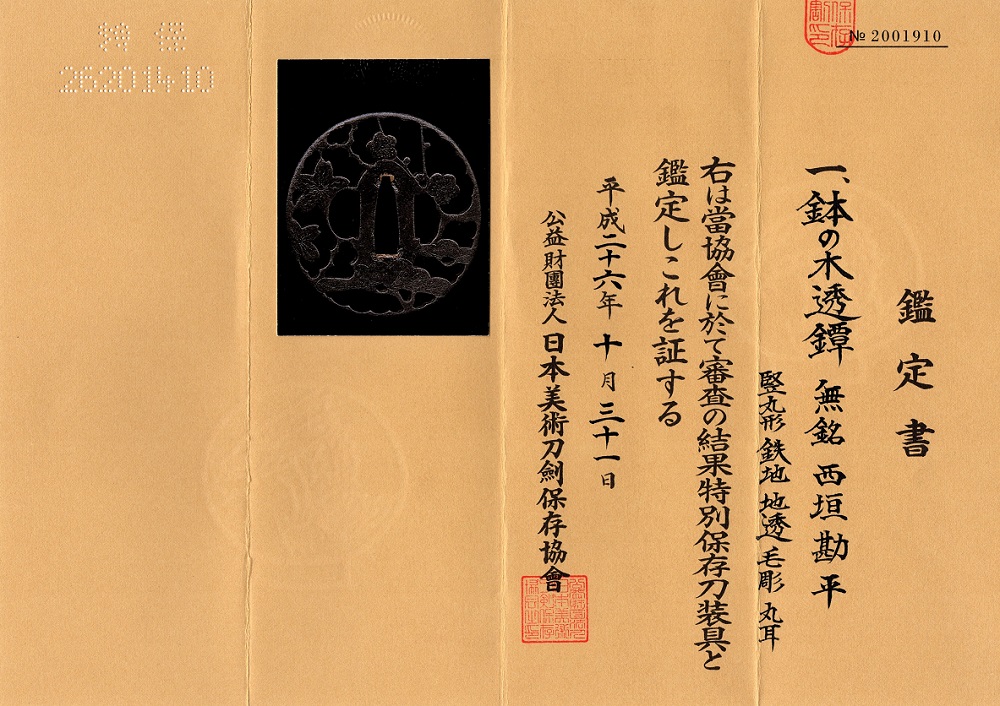 鑑定書
№ 2001910
一、鉢の木透鐔 無銘 西垣勘平
竪丸形 鉄地 地透 毛彫 丸耳
右は當協會に於て審査の結果特別保存刀装具と
鑑定しこれを証する
平成二十六年 十月 三十一日
公益財團法人 日本美術刀劍保存協會
特保
26201410
保存
割印